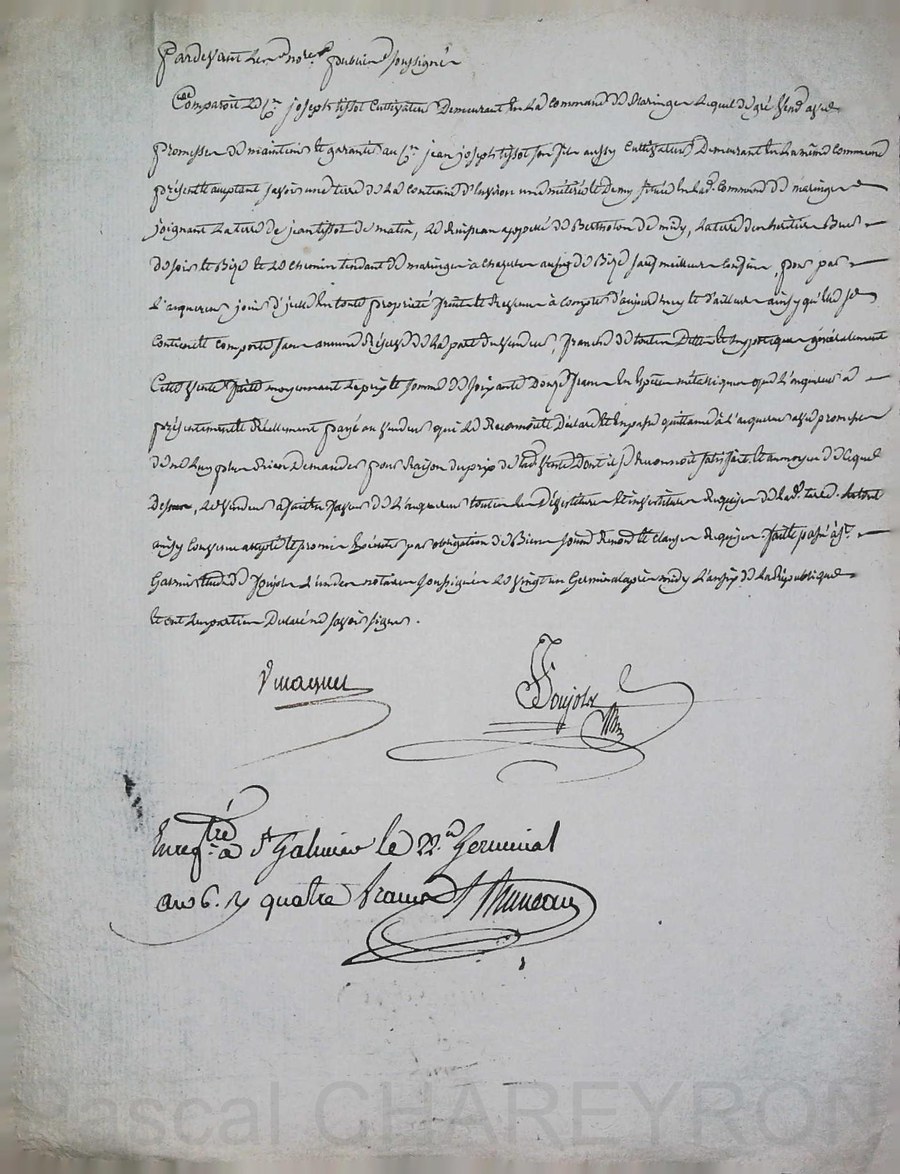 Pardevant les no.res publics soussignés
Comparoit le C.n joseph tissot Cultivateur Demeurant en la commune de Maringe lequel de gré vend avec
promesse de maintenir et garantir au C.n jean joseph tissot son fils aussy Cultivateur Demeurant en la même commune
présent et acceptant savoir une terre de la contenue d'environ une métérée et Demy située en lad. Commune de maringe
joignant la terre de jean tissot de matin, de Bertholon de midy, la terre des héritiers
de soir et Bize et le chemin tendant de maringe à chazelle aussy de Bize sauf meilleurs Confins, pour par
l'acquereur jouir d'icelle en toute propriété fruits et Revenus à compter d'aujourd'huy et d'ailleurs ainsy qu'elle se
Contient et comporte sans aucune Réserve de la part du vendeur, franche de toutes Dettes et hypotèques généralement
Cette vente faite moyennant le prix et somme de soixante Douze francs en espèces métalliques que l'acquereur a
présentement et Réellement payé au vendeur qui le Reconnoit et Déclare et en passe quittance à l'acquereur avec promesse
de ne luy plus Rien Demander pour Raison du prix de lad. vente Dont il se reconnoit satisfait et au moyen de ce que
Dessus, le vendeur a fait en faveur de l'acquereur toutes les Dévestiture et investiture Requises de lad. terre.
ainsy Convenu accepté et promis par obligation de Biens soumis Renoncé et clauses Requises. faite passé à S.t
Galmier étude de Poujolx l'un des notaires soussignés le vingt un Germinal après midy l'an six de la République
et ont les parties Déclaré ne savoir signer.
Vmagnes
Poujolx
Enregi.tré à S.t Galmier le 22. Germinal
an 6. R quatre francs
Pascal CHAREYRON